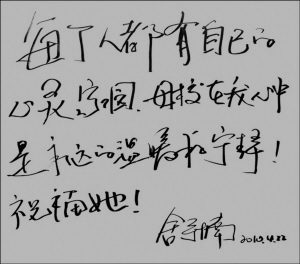 每个人都有自己的
心灵家园，母校在我心中
是永远的温暖和宁静！
祝福她！
2010.4.22